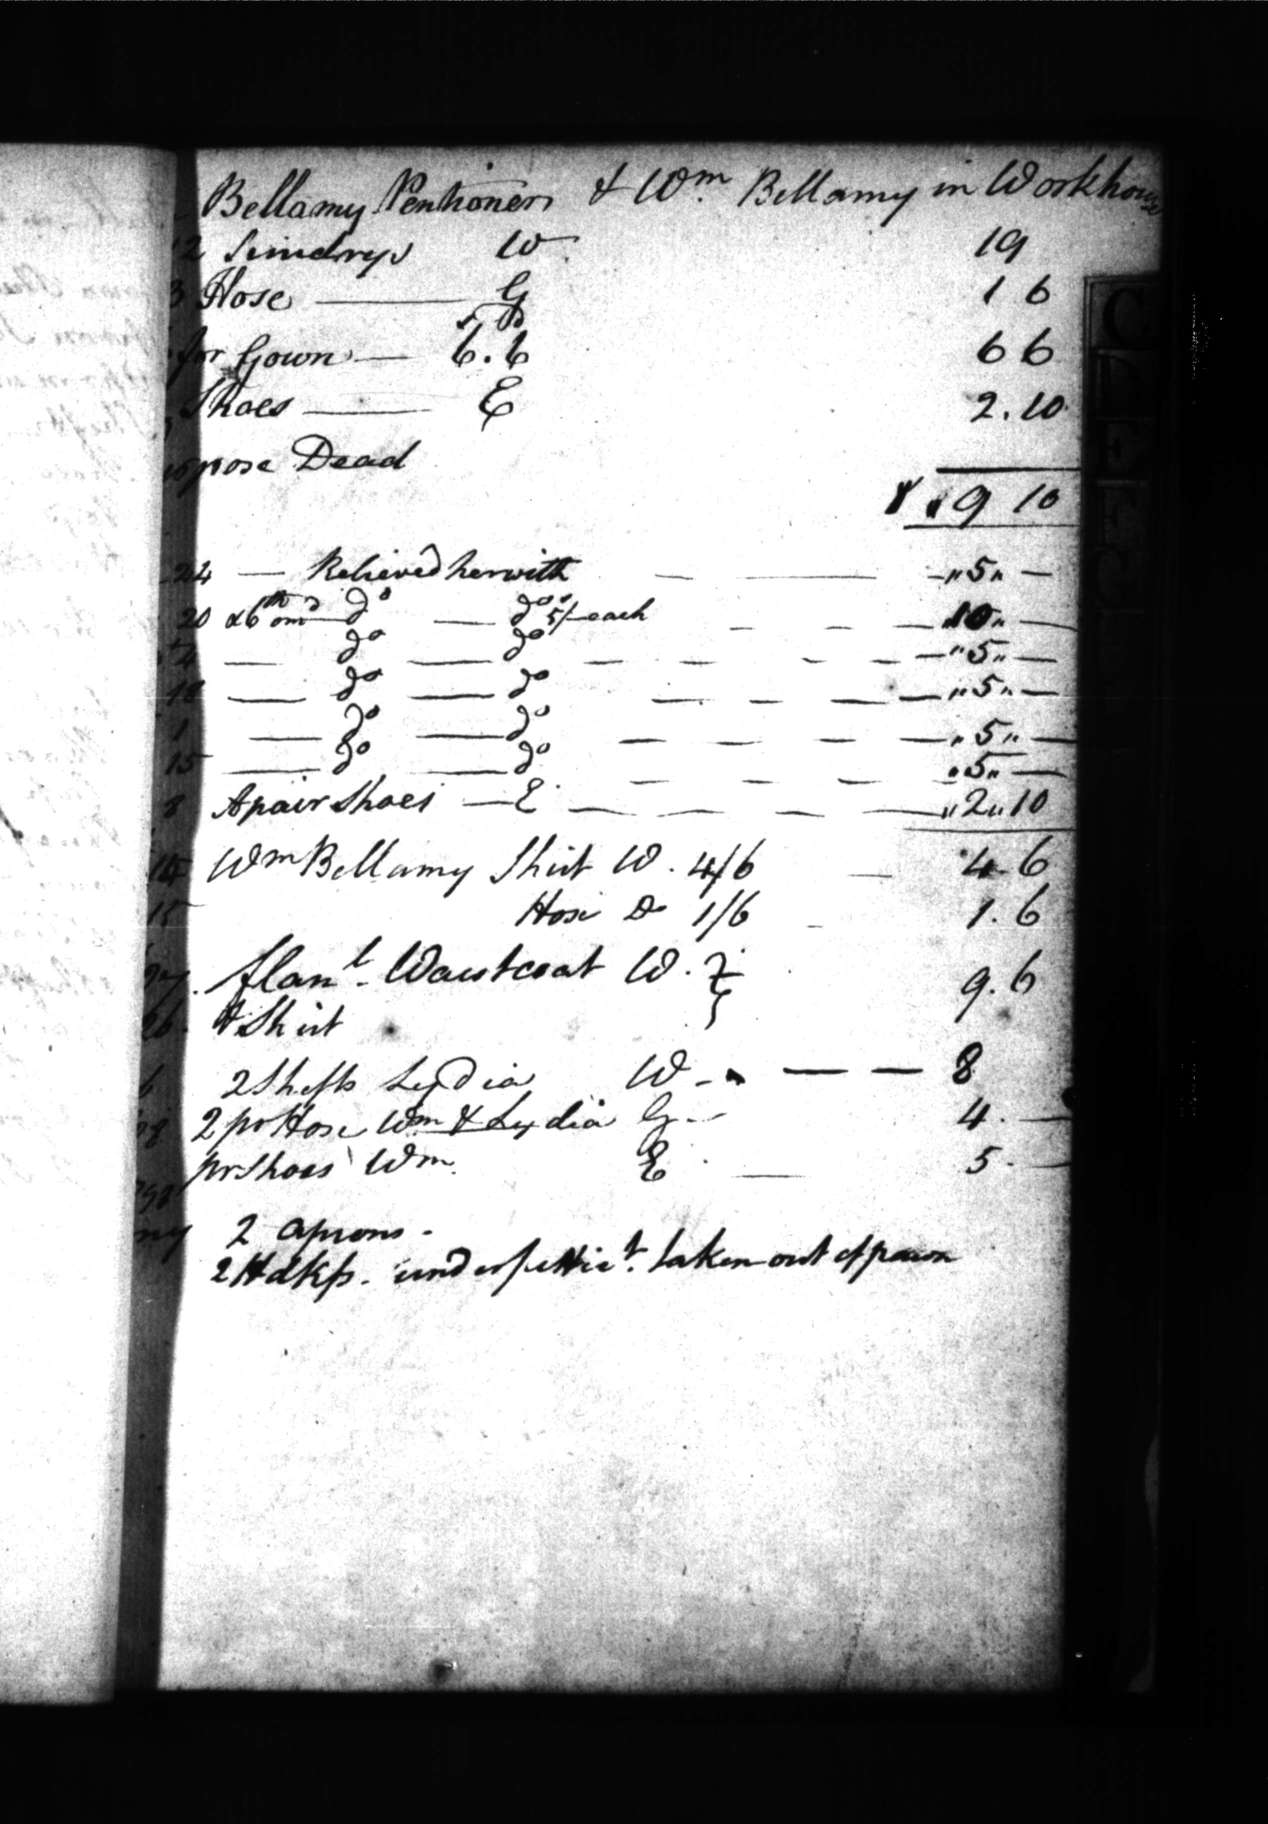 Bellamy Pentioners & Wm. Bellamy in Workhouse
2 Sundrys W 19
3 Hose G 1 6
for Gown 6.6 6 6
Shoes E 2.10
pose Dead
1 „ 9 10
24 — Relieved her with — — — „5„ —
20 & 6th omd Do — Do 5/ each — — — „10„ —
4 — Do — Do — — — — „5„ —
18 — Do — Do — — — „5„ —
1 — Do — Do — — — — „5„ —
15 — Do — Do — — — „5„ —
8 A pair Shoes — E — — — — „2„10
14 Wm Bellamy Shirt W. 4/6 — 4.6
15 Hose Do 1/6 1.6
flant. Waistcoat W. 9.6
26. & Shirt
6 2 Shifts Lydia W — — — 8
2 pr Hose Wm & Lydia G — 4. —
pr Shoes Wm. E. — 5. —
2 aprons.
2 Hdkfs. under pettict. taken out of pawn
C
D
E
F
G